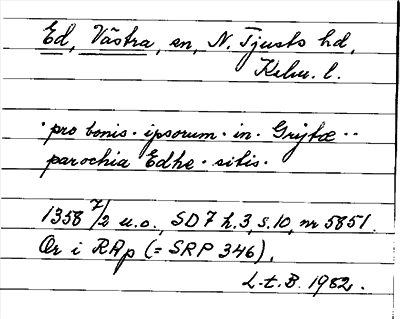 Ed, Västra, sn, N. Tjusts hd,
Kalm. l.
· pro bonis · ipsorum · in · Grytæ ··
parochia Edhe · sitis ·
1358 7/2 u.o., SD 7 h.3, s.10, nr 5851.
Or i RAp (= SRP 346).
L-t. B. 1982.